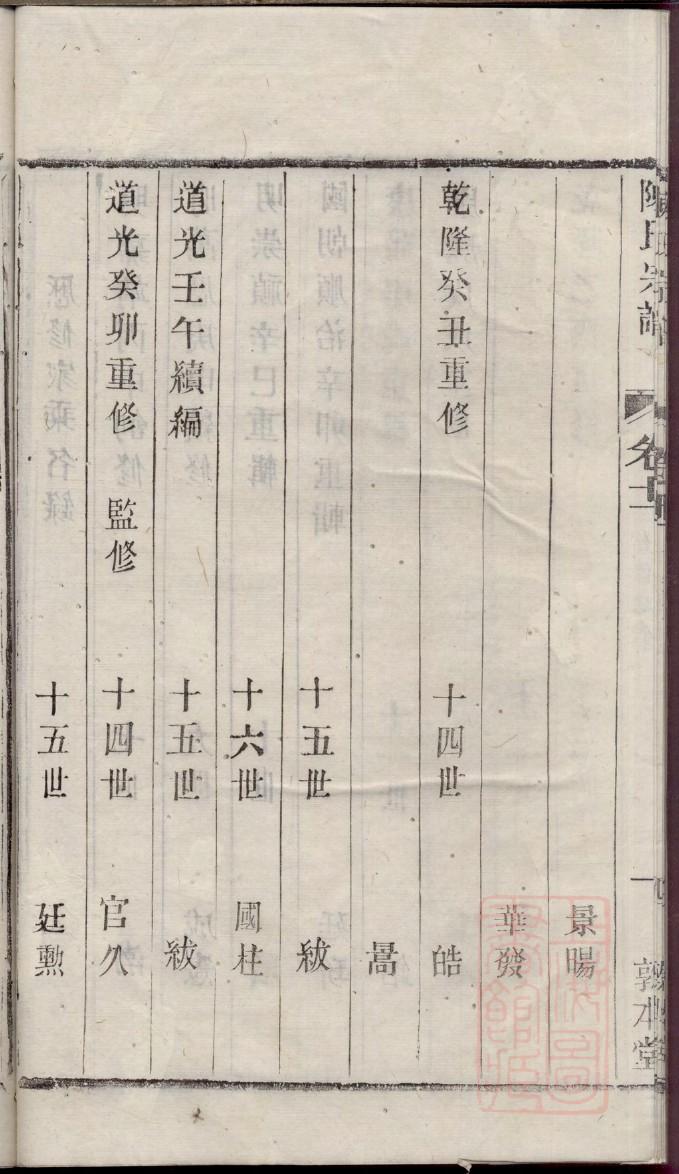 陳氏宗譜 卷十二 一 敦本堂
景暘
華發
乾隆癸丑重修 十四世 皓
暠
十五世 紱
十六世 國柱
道光壬午續編 十五世 紱
道光癸卯重修 監修 十四世 官久
十五世 廷勲